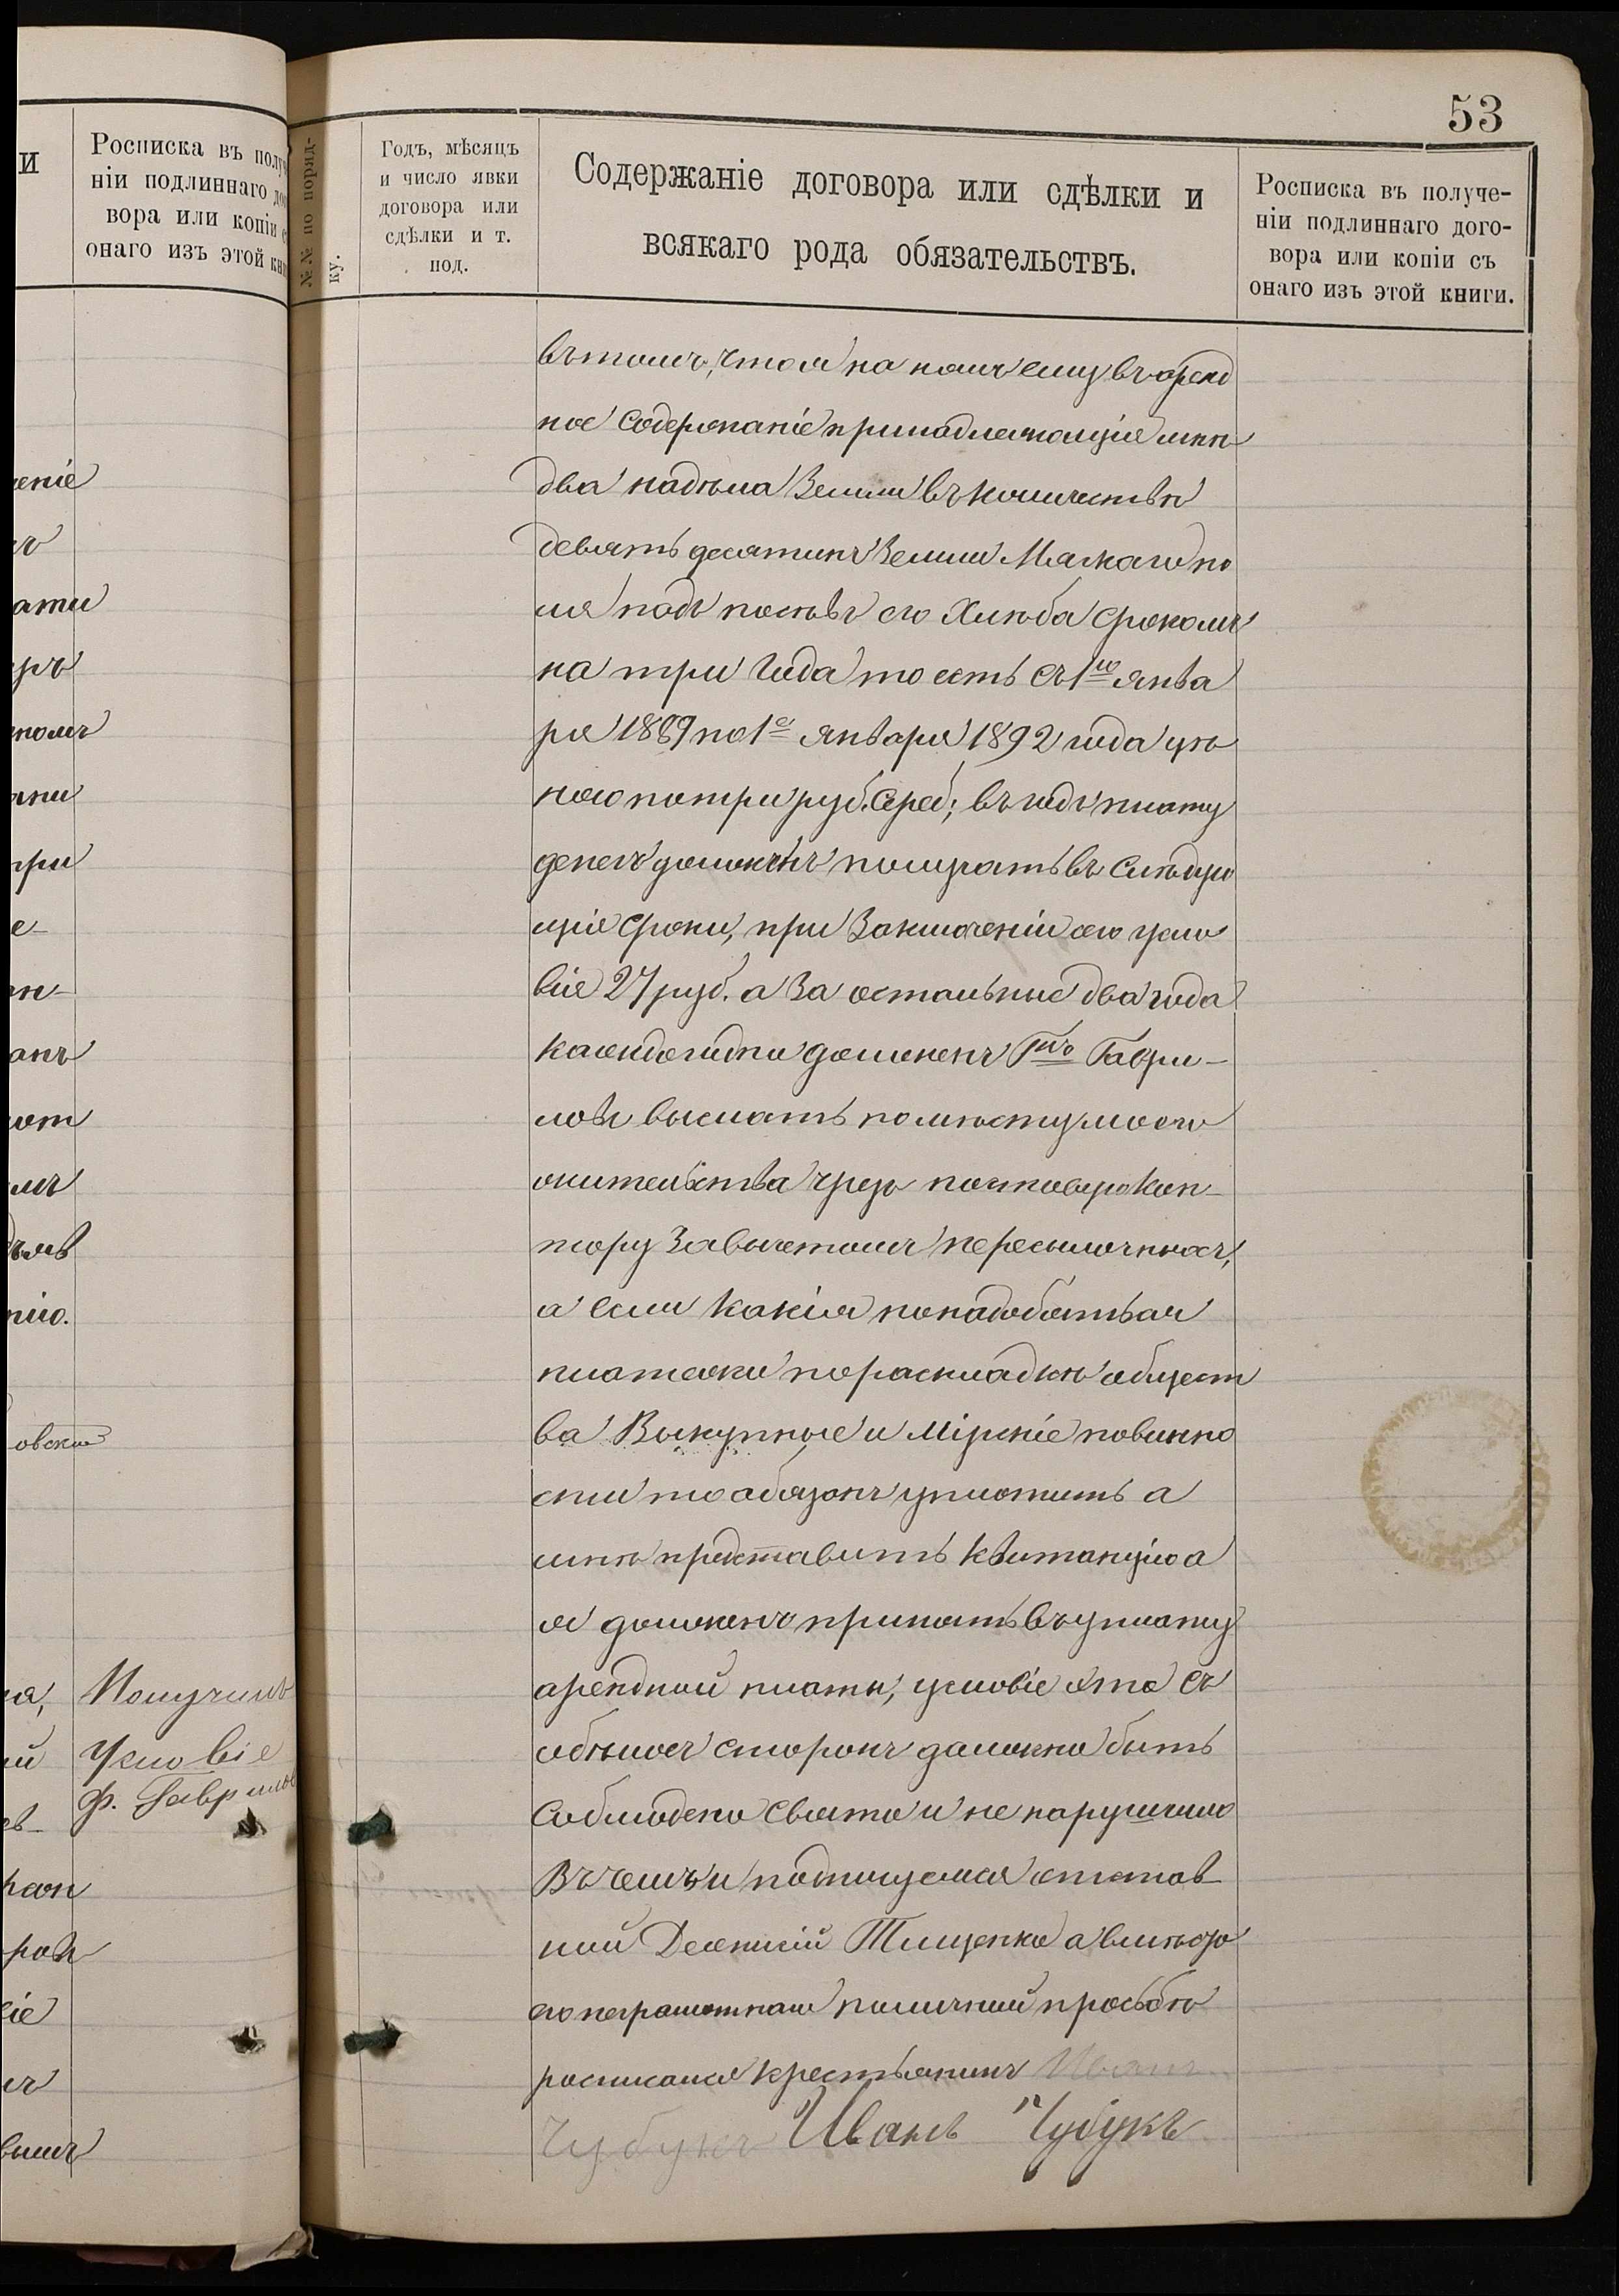 53
и
Росписка въ полу
ніи подлиннаго до
вора или копіи с
онаго изъ этой кни
№№ по поряд-
ку.
Годъ, мѣсяцъ
и число явки
договора или
сдѣлки и т.
под.
Содержаніе договора или сдѣлки и
всякаго рода обязательствъ.
Росписка въ получе-
ніи подлиннаго дого-
вора или копіи съ
онаго изъ этой книги.
Получилъ
Условіе
Ф. Гаврилов
въ томъ, что я на налъ ему въ аренд
ное содержаніе принадлежащія мнѣ
два надѣла Земли въ количествѣ
девять десятинъ Земли Мягкаго по
ля подъ посѣвъ его Хлѣба срокомъ
на три Года то есть съ 1го янва
ря 1889 по 1е января 1892 года цѣ
ною по три руб. Сереб; въ годъ плату
денегъ долженъ получать въ слѣдую
щіе сроки, при Заключеніи сего усло
вія 27 руб. а За остальные два года
каждогодно долженъ Гнъ Гаври-
ловъ высылать по мѣсту моего
жительства чрезъ почтовую Кон-
тору За вычетомъ пересылочныхъ,
а если какія понадобаться
платежи по раскладкѣ общест
ва Выкупные и Мірскіе повинно
сти то обязанъ уплотить а
мнѣ представить квитанцію а
я долженъ принать въ уплату
арендной платы, условіе это съ
обѣихъ сторонъ должно быть
соблюдено свято и не нарушимо
Въ чемъ и подпишемся отстав
ной Тищенко а вмѣсто
его неграмотнаго по личной просьбѣ
росписался крестьянинъ Иванъ
Чубукъ Иванъ Чубукъ